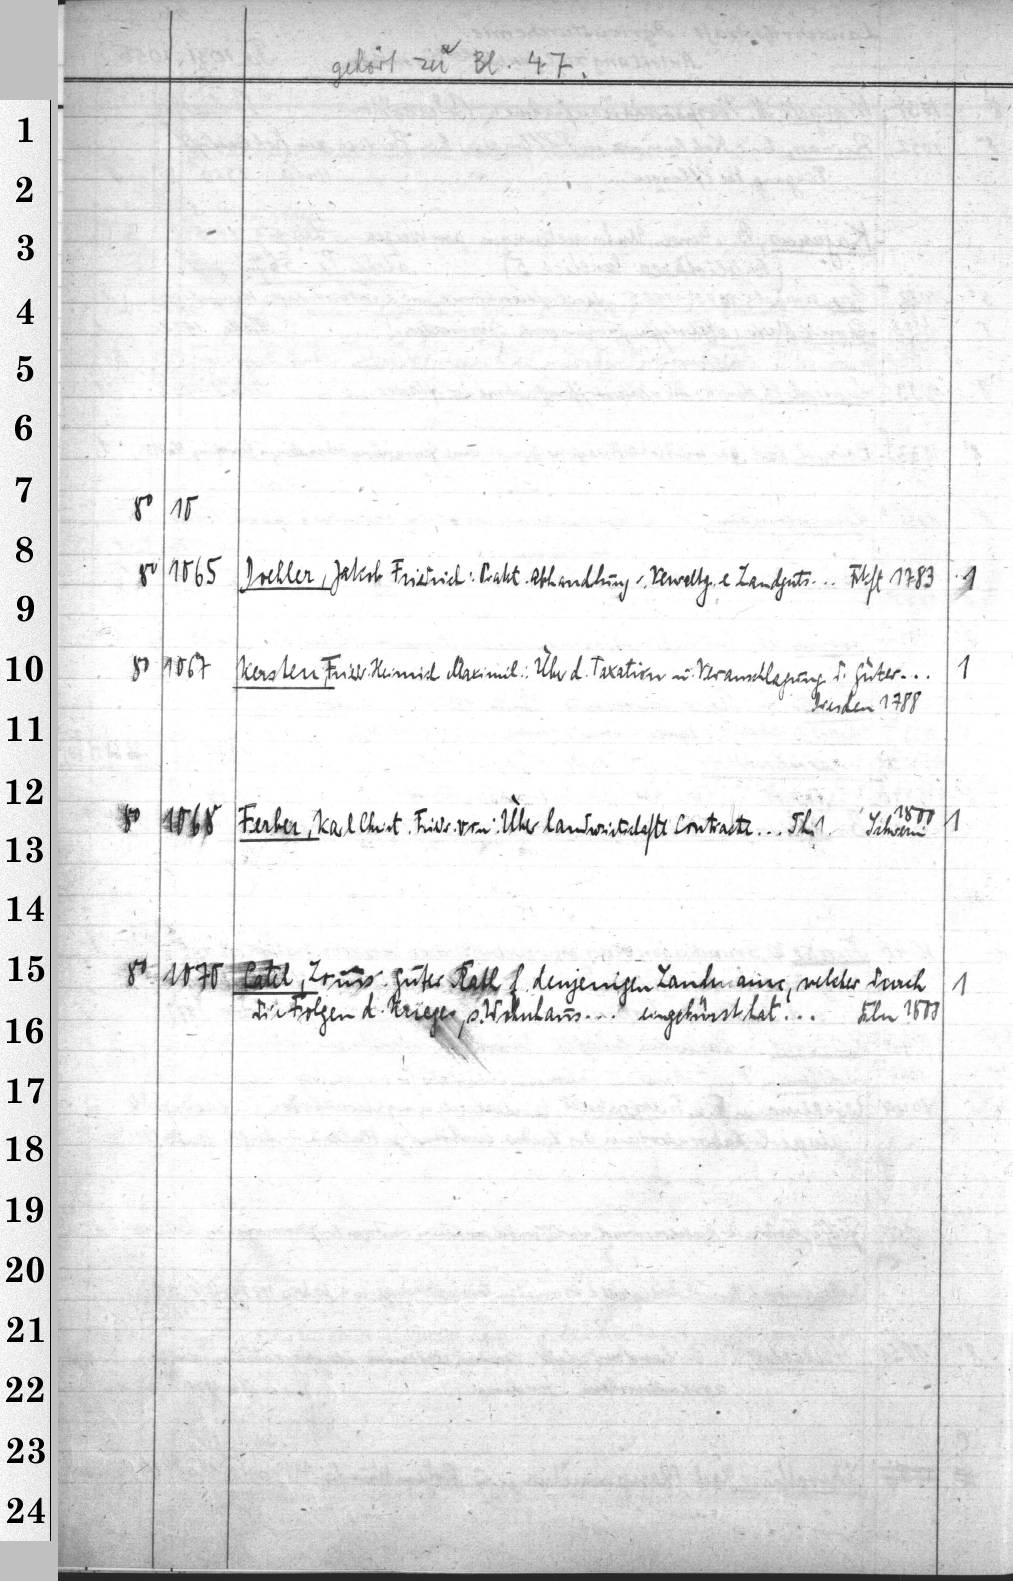 gehört zu Bl. 47.
1
2
3
4
5
6
7
8° 10
8
8° 1065 Doehler, Jakob Friedrich: Prakt. Abhandlung v. Verwaltg. e Landguts... Fkft 1783 1
9
10 8° 1067 Kersten, Friedr. Heinrich Maximil.: Über d. Taxation u. Veranschlagung d. Güter... 1
Dresden 1788
11
12
8° 1068 Ferber, Karl Christ. Friedr. von: Über landwirtschaftl Contracte... Th. 1. Schwerin 1800 1
13
14
15 8° 1070 Catel, Louis: Guter Rath f. denjenigen Landmann, welcher durch 1
16 die Folgen d. Krieges, s. Wohnhaus... eingebüsst hat... Bln 1808
17
18
19
20
21
22
23
24